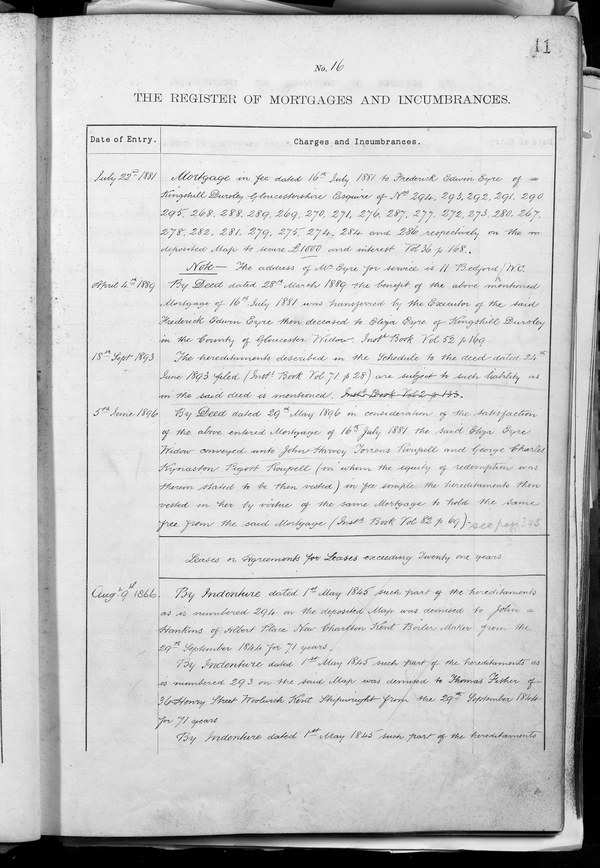 11
No. 16
THE REGISTER OF MORTGAGES AND INCUMBRANCES.
Date of Entry. Charges and Incumbrances.
July 22nd 1881 Mortgage in fee dated 16th July 1881 to Frederick Edwin Eyre of
Kingshill Dursley Gloucestershire Esquire of Nos 294, 293, 292, 291, 290
295, 268, 288, 289, 269, 270, 271, 276, 287, 277, 272, 273, 280, 267,
278, 282, 281, 279, 275, 274, 284 and 286 respectively on the
deposited Map to secure £1000 and interest Vol 36 p 168.
Note— The address of Mr Eyre for service is 11 Bedford W.C.
April 4th 1889 By Deed dated 28th March 1889 the benefit of the above mentioned
Mortgage of 16th July 1881 was transferred by the Executor of the said
Frederick Edwin Eyre then deceased to Eliza Eyre of Kingshill Dursley
in the County of Gloucester Widow. Instt Book Vol 52 p 169
18th Sept 1893 The hereditaments described in the Schedule to the deed dated 24th
June 1893 filed (Instt Book Vol 71 p 28) are subject to such liability as
in the said deed is mentioned. Instt Book Vol 2 p 133.
5th June 1896 By Deed dated 29th May 1896 in consideration of the satisfaction
of the above entered Mortgage of 16th July 1881 the said Eliza Eyre
Widow conveyed unto John Harvey Torrens Roupell and George Charles
Kynaston Pigott Roupell (in whom the equity of redemption was
therein stated to be then vested) in fee simple the hereditaments then
vested in her by virtue of the same Mortgage to hold the same
free from the said Mortgage (Instt Book Vol 82 p 69). see page 345
Leases or Agreements for Leases exceeding Twenty one years
Augt 9th 1866 By Indenture dated 1st May 1845 such part of the hereditaments
as is numbered 294 on the deposited Map was demised to John
Hankins of Albert Place New Charlton Kent Boiler Maker from the
29th September 1844 for 71 years.
By Indenture dated 1st May 1845 such part of the hereditaments as
is numbered 293 on the said Map was demised to Thomas Fisher of
36 Henry Street Woolwich Kent Shipwright from the 29th September 1844
for 71 years
By Indenture dated 1st May 1845 such part of the hereditaments